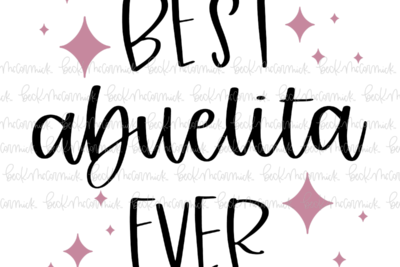 BEST
abuelita
EVER